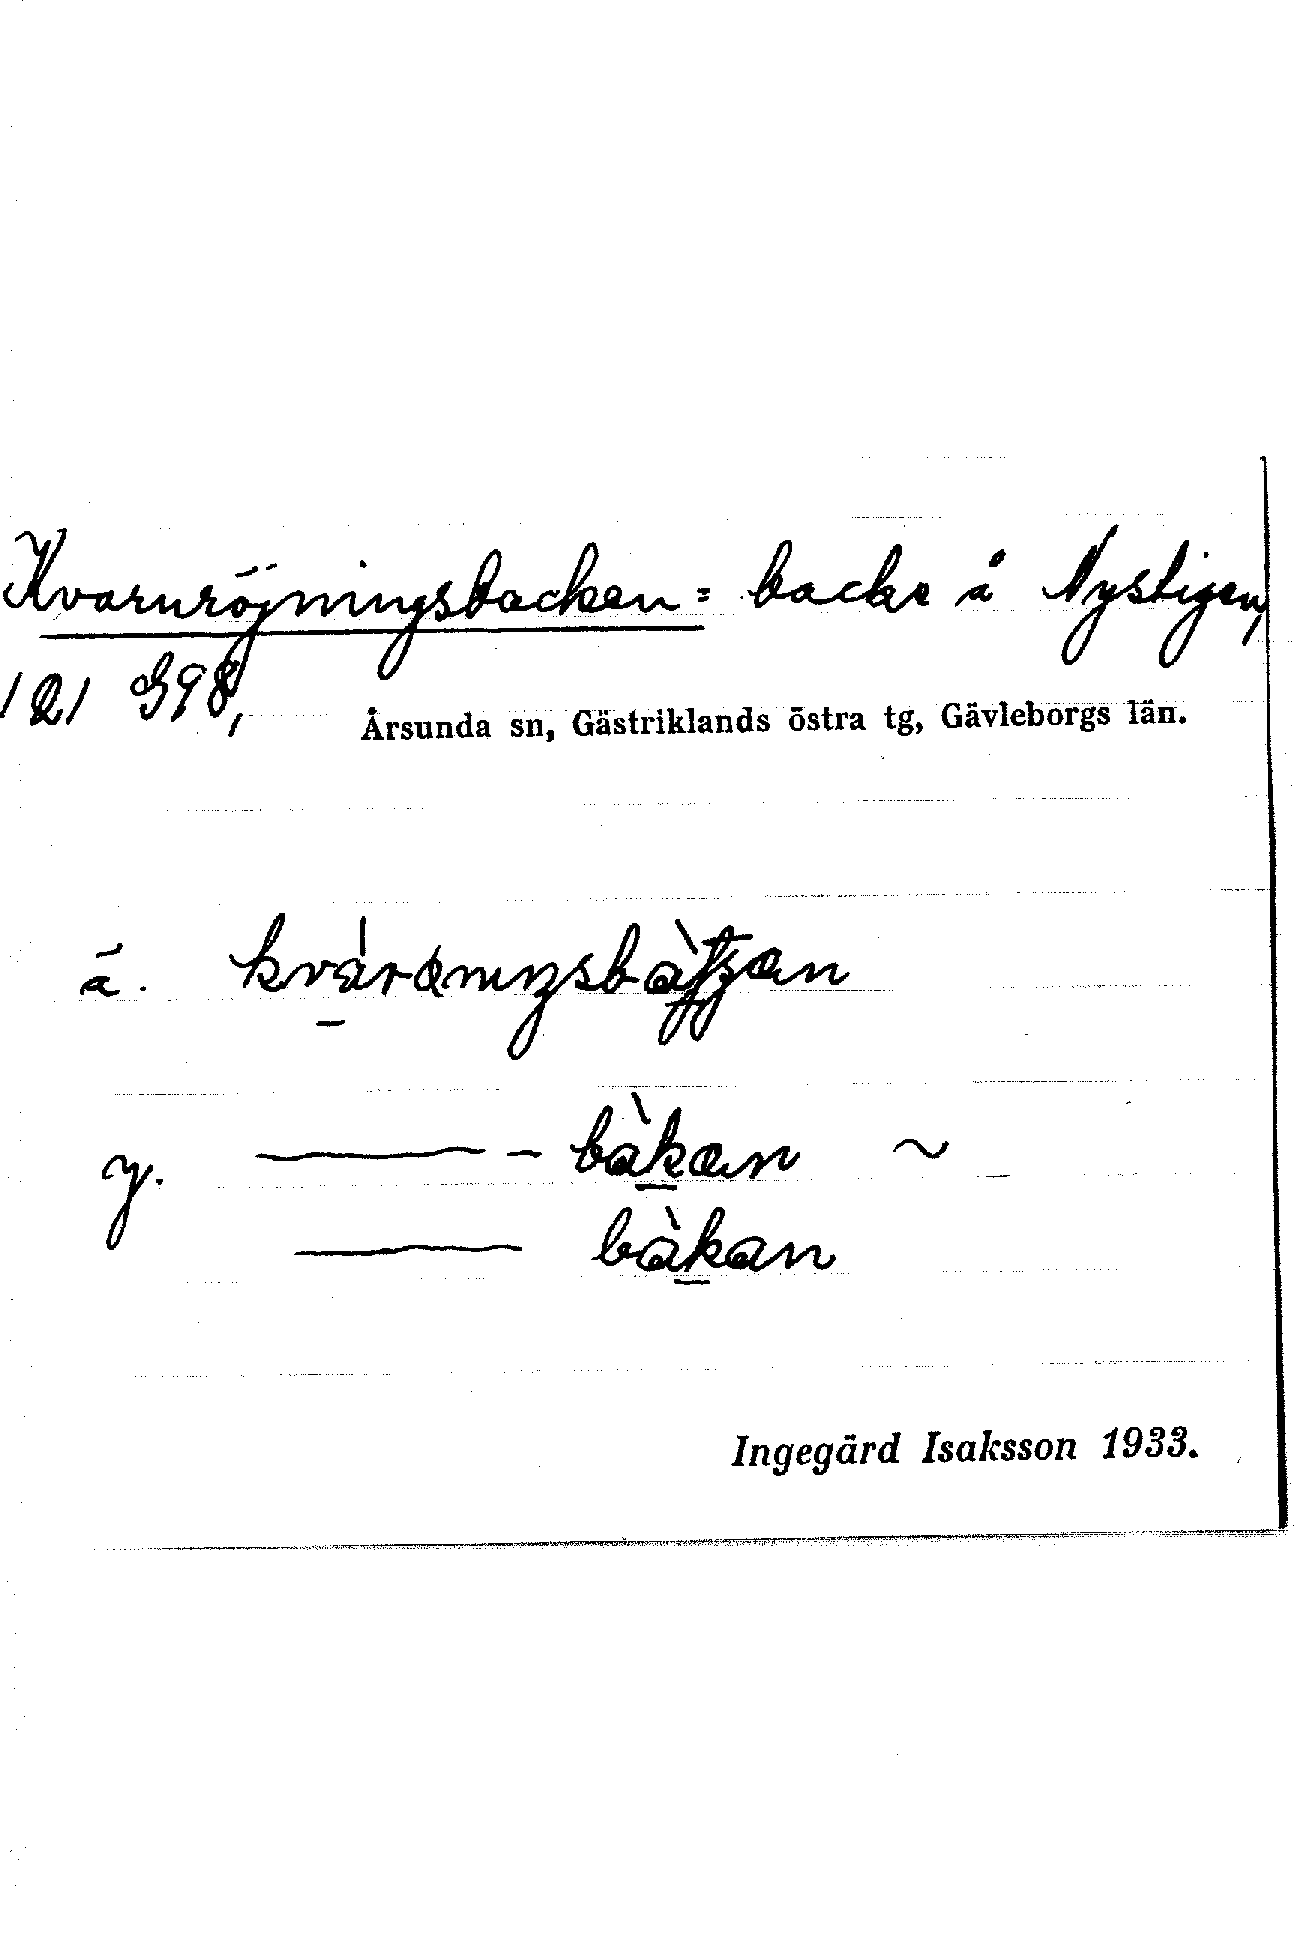 Kvarnröjningsbacken = backe å Nystigen,
121 398,
Årsunda sn, Gästriklands östra tg, Gävleborgs län.
ä.
y. ——— – bàkan ~
——— bàkan
Ingegärd Isaksson 1933.